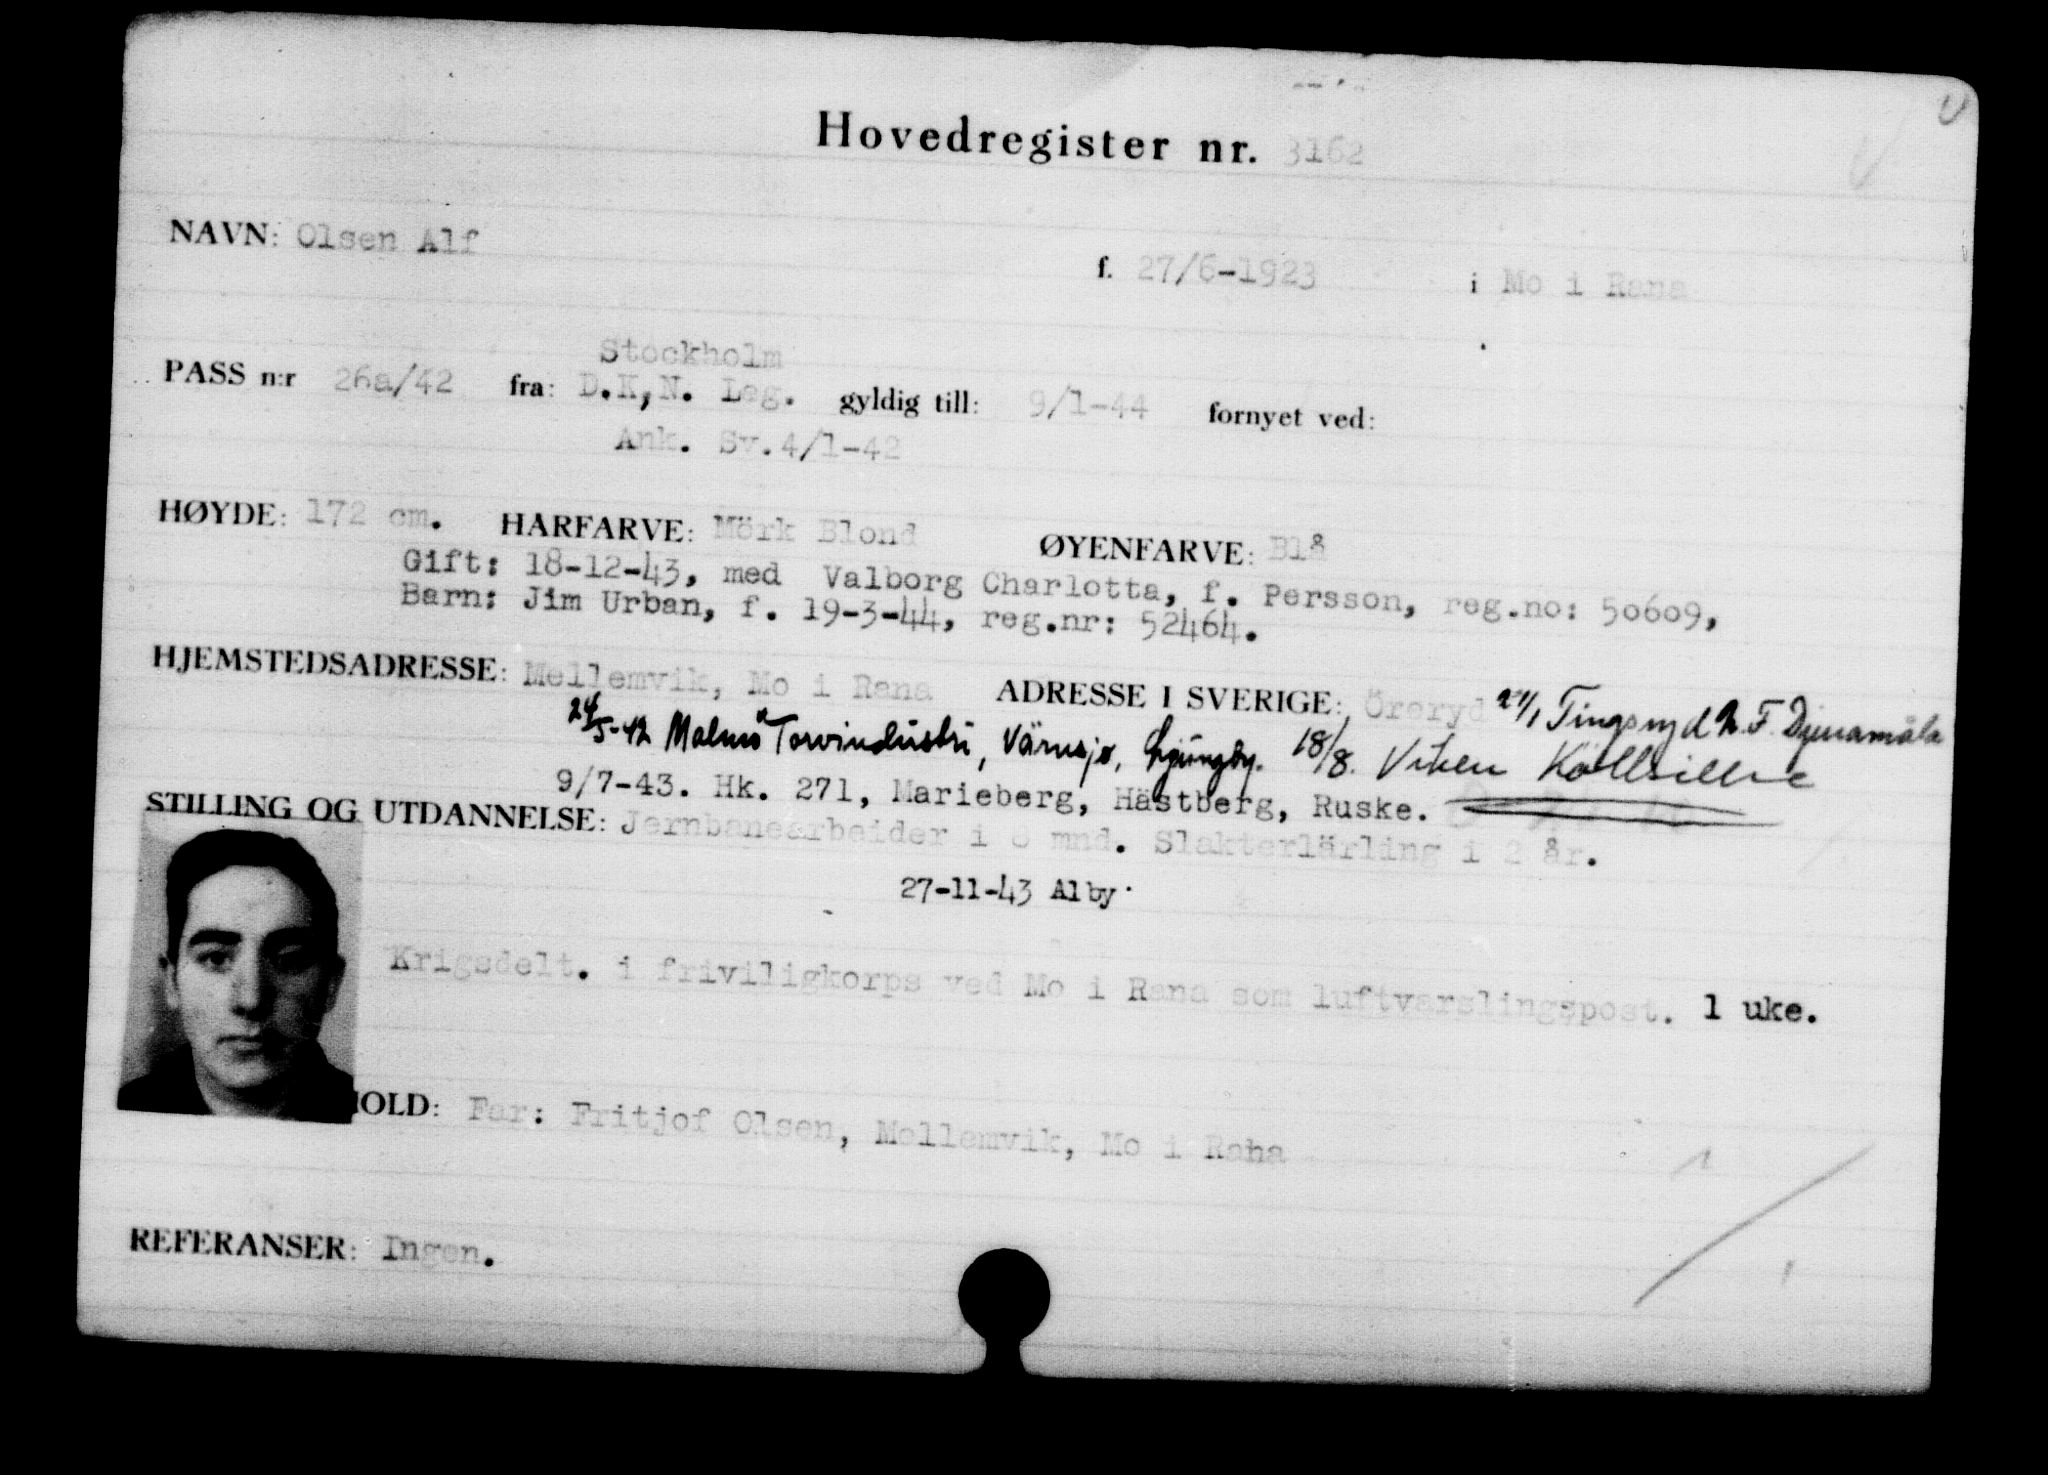 Hovedregister nr. 3162
NAVN: Olsen Alf f. 27/6-1923 i Mo i Rana
Stockholm
PASS n:r 26a/42 fra: D.K,N. Leg. gyldig till: 9/1-44 fornyet ved:
Ank. Sv. 4/1-42
HØYDE: 172 cm. HARFARVE: Mörk Blond ØYENFARVE: Blå
Gift: 18-12-43, med Valborg Charlotta, f. Persson, reg.no: 50609,
Barn: Jim Urban, f. 19-3-44, reg.nr: 52464.
HJEMSTEDSADRESSE: Mellemvik, Mo i Rana ADRESSE I SVERIGE: Öreryd Tingsryd
24/5-42 Malmö Torvindustri, Värnsjø, Ljungby. 18/8. Viken
9/7-43. Hk. 271, Marieberg, Hästberg, Ruske.
STILLING OG UTDANNELSE: Jernbanearbeider i mnd. Slakterlärling i 2 år.
27-11-43 Alby
Krigsdelt. i friviligkorps ved Mo i Rana som luftvarslingspost. 1 uke.
HOLD: Far: Fritjof Olsen, Mellemvik, Mo i Rana
REFERANSER: Ingen.